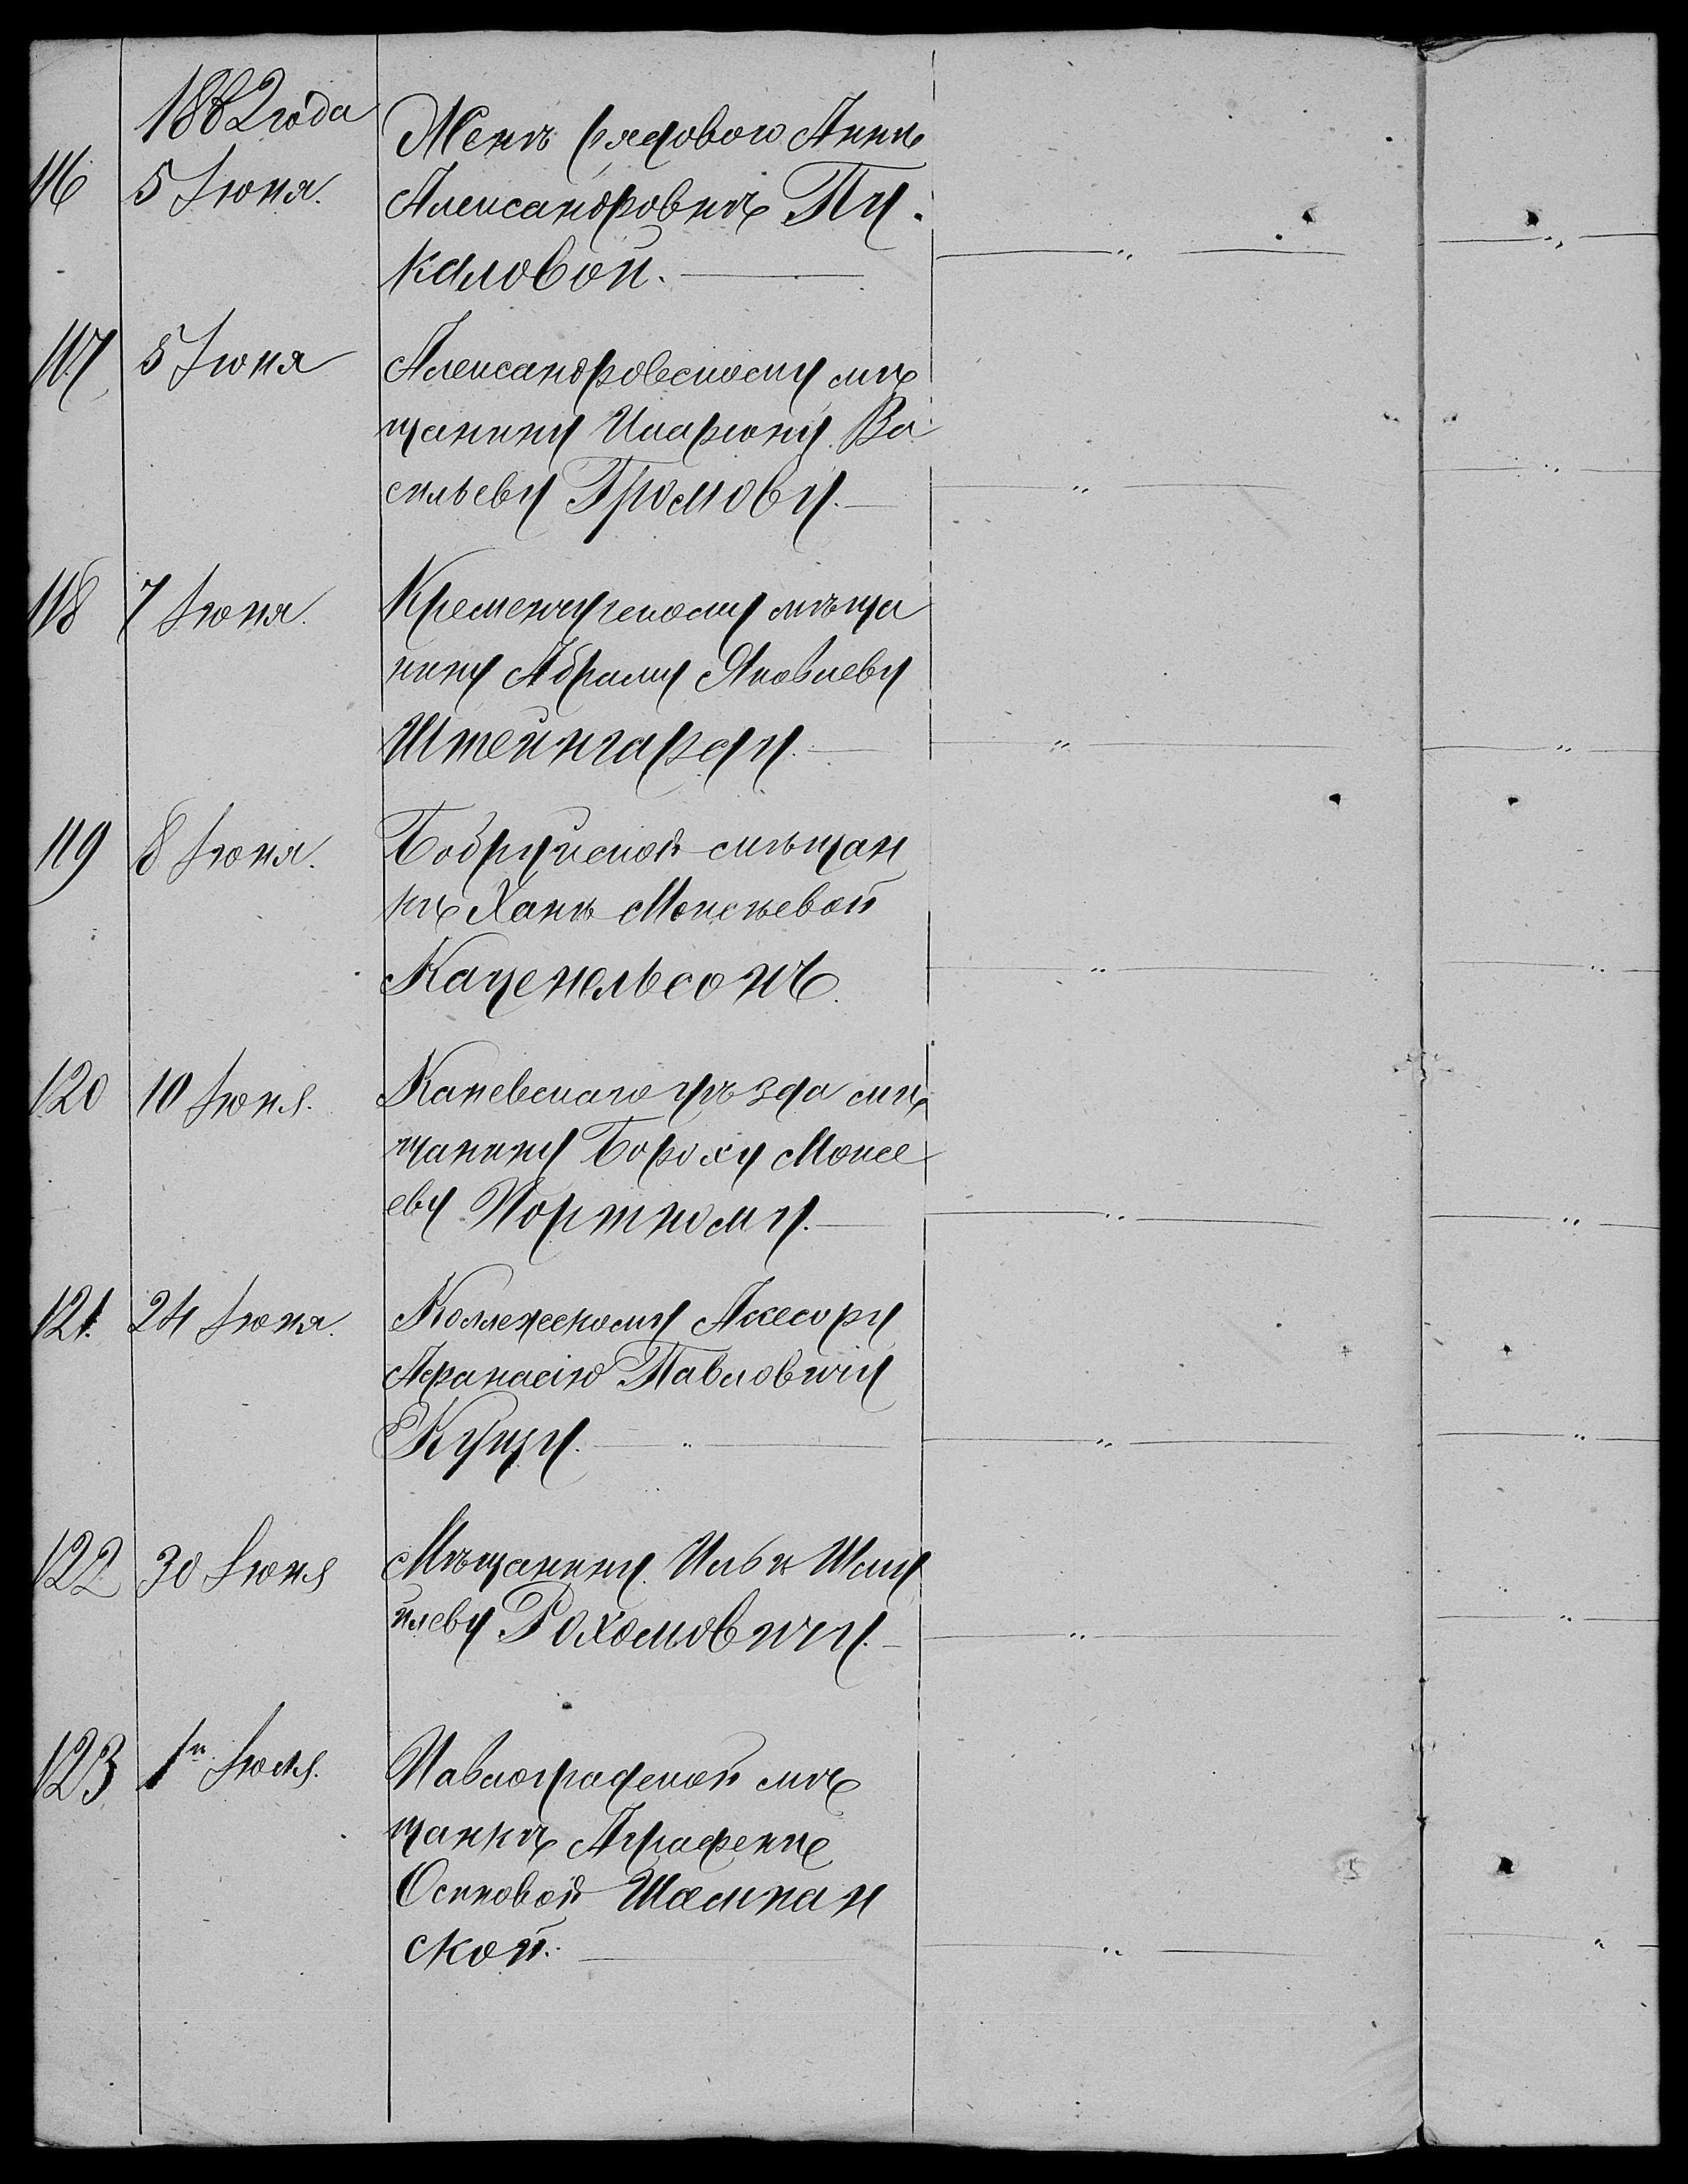 1882 года
116 5 Іюня. Женѣ рядового Аннѣ
Александровнѣ Пу-
каловой.
117 5 Іюня Александровскому мѣ
щанину Иларіону Ва
сильеву Громову.
118 7 Іюня. Кременчугскому мѣща
нину Абраму Яковлеву
Штейнгарду.
119 8 Іюня. Бобруйской мѣщан
кѣ Ханѣ Моисѣевой
Каценельсонъ.
120 10 Іюня. Каневскаго уѣзда мѣ
щанину Бороху Моисе
еву Портному.
121. 24 Іюня. Коллежскому Ассесору
Афанасію Павловичу
Кущу.
122 30 Іюня Мѣщанину Ильѣ Шму
илеву Рохомовичу.
123 1го Іюля. Павлоградской мѣ
щанкѣ Аграфенѣ
Осиповой Шампан
ской.